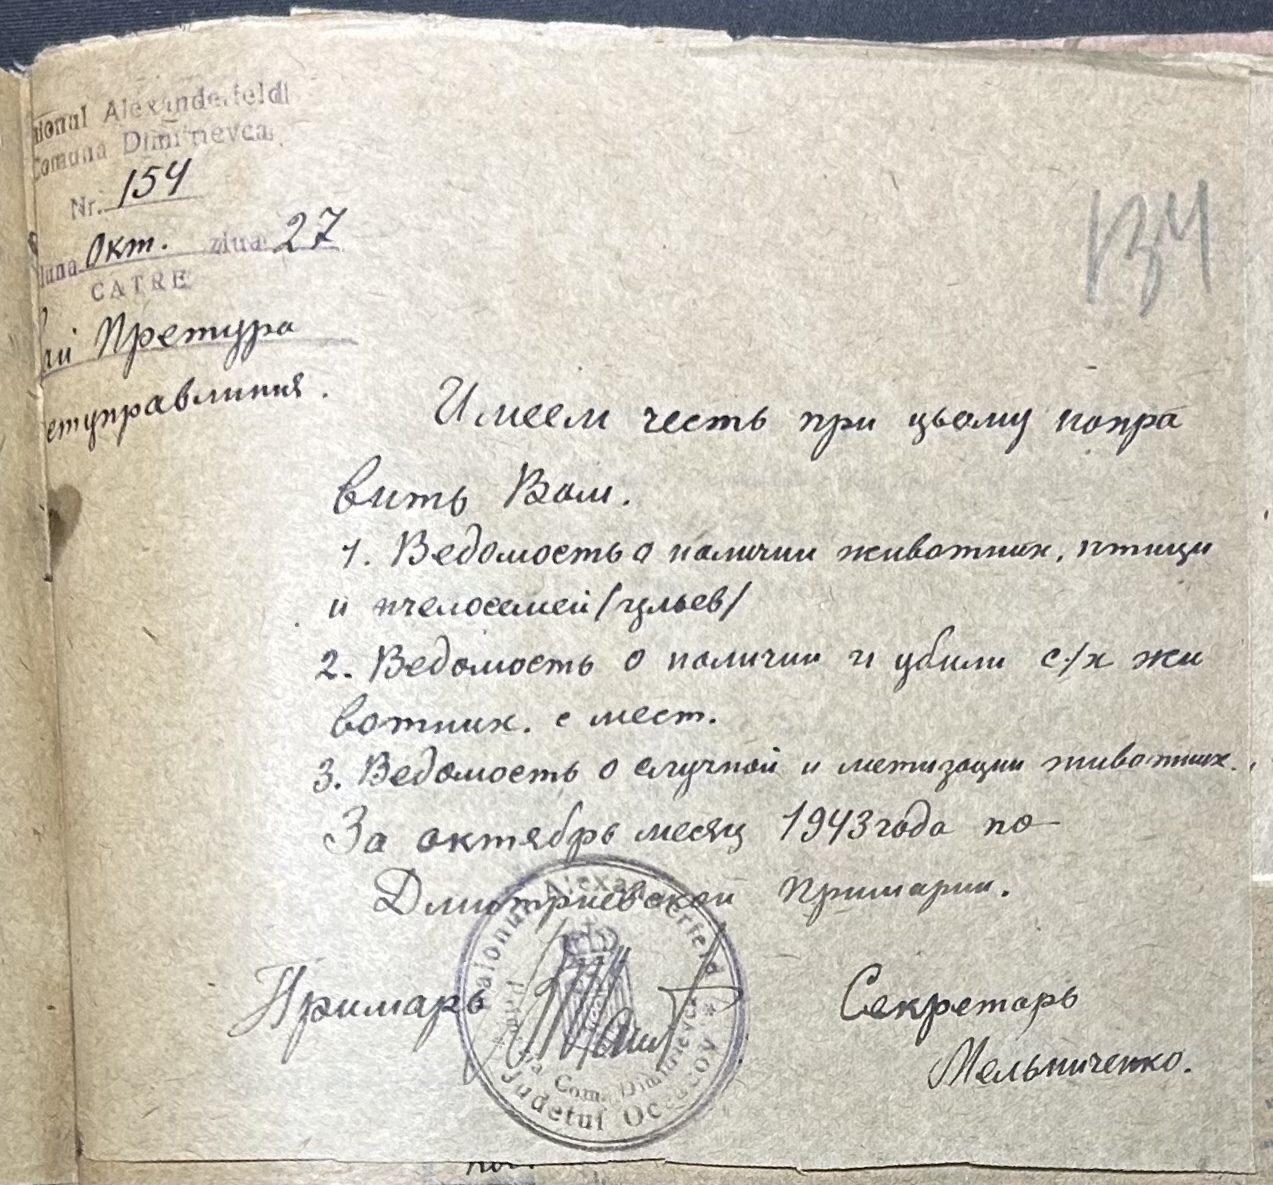 Alexanderfeld
Comuna Dimitrievca
Nr. 154
luna Окт. ziua 27
CATRE
Претура
134
Имеем честь при цьому напра
вить Вам.
1. Ведомость о наличии животних, птици
и пчелосемей /ульев/
2. Ведомость о наличии и убили с/х жи
вотних. с мест.
3. Ведомость о случной и метизации животних.
За октябрь месяц 1943 года по
Дмитриевской примарии.
Примарь
Raionul Alexanderfeld
Primăria Com. Dimitrievca
* Judetul Oceacov *
Секретарь
Мельниченко.